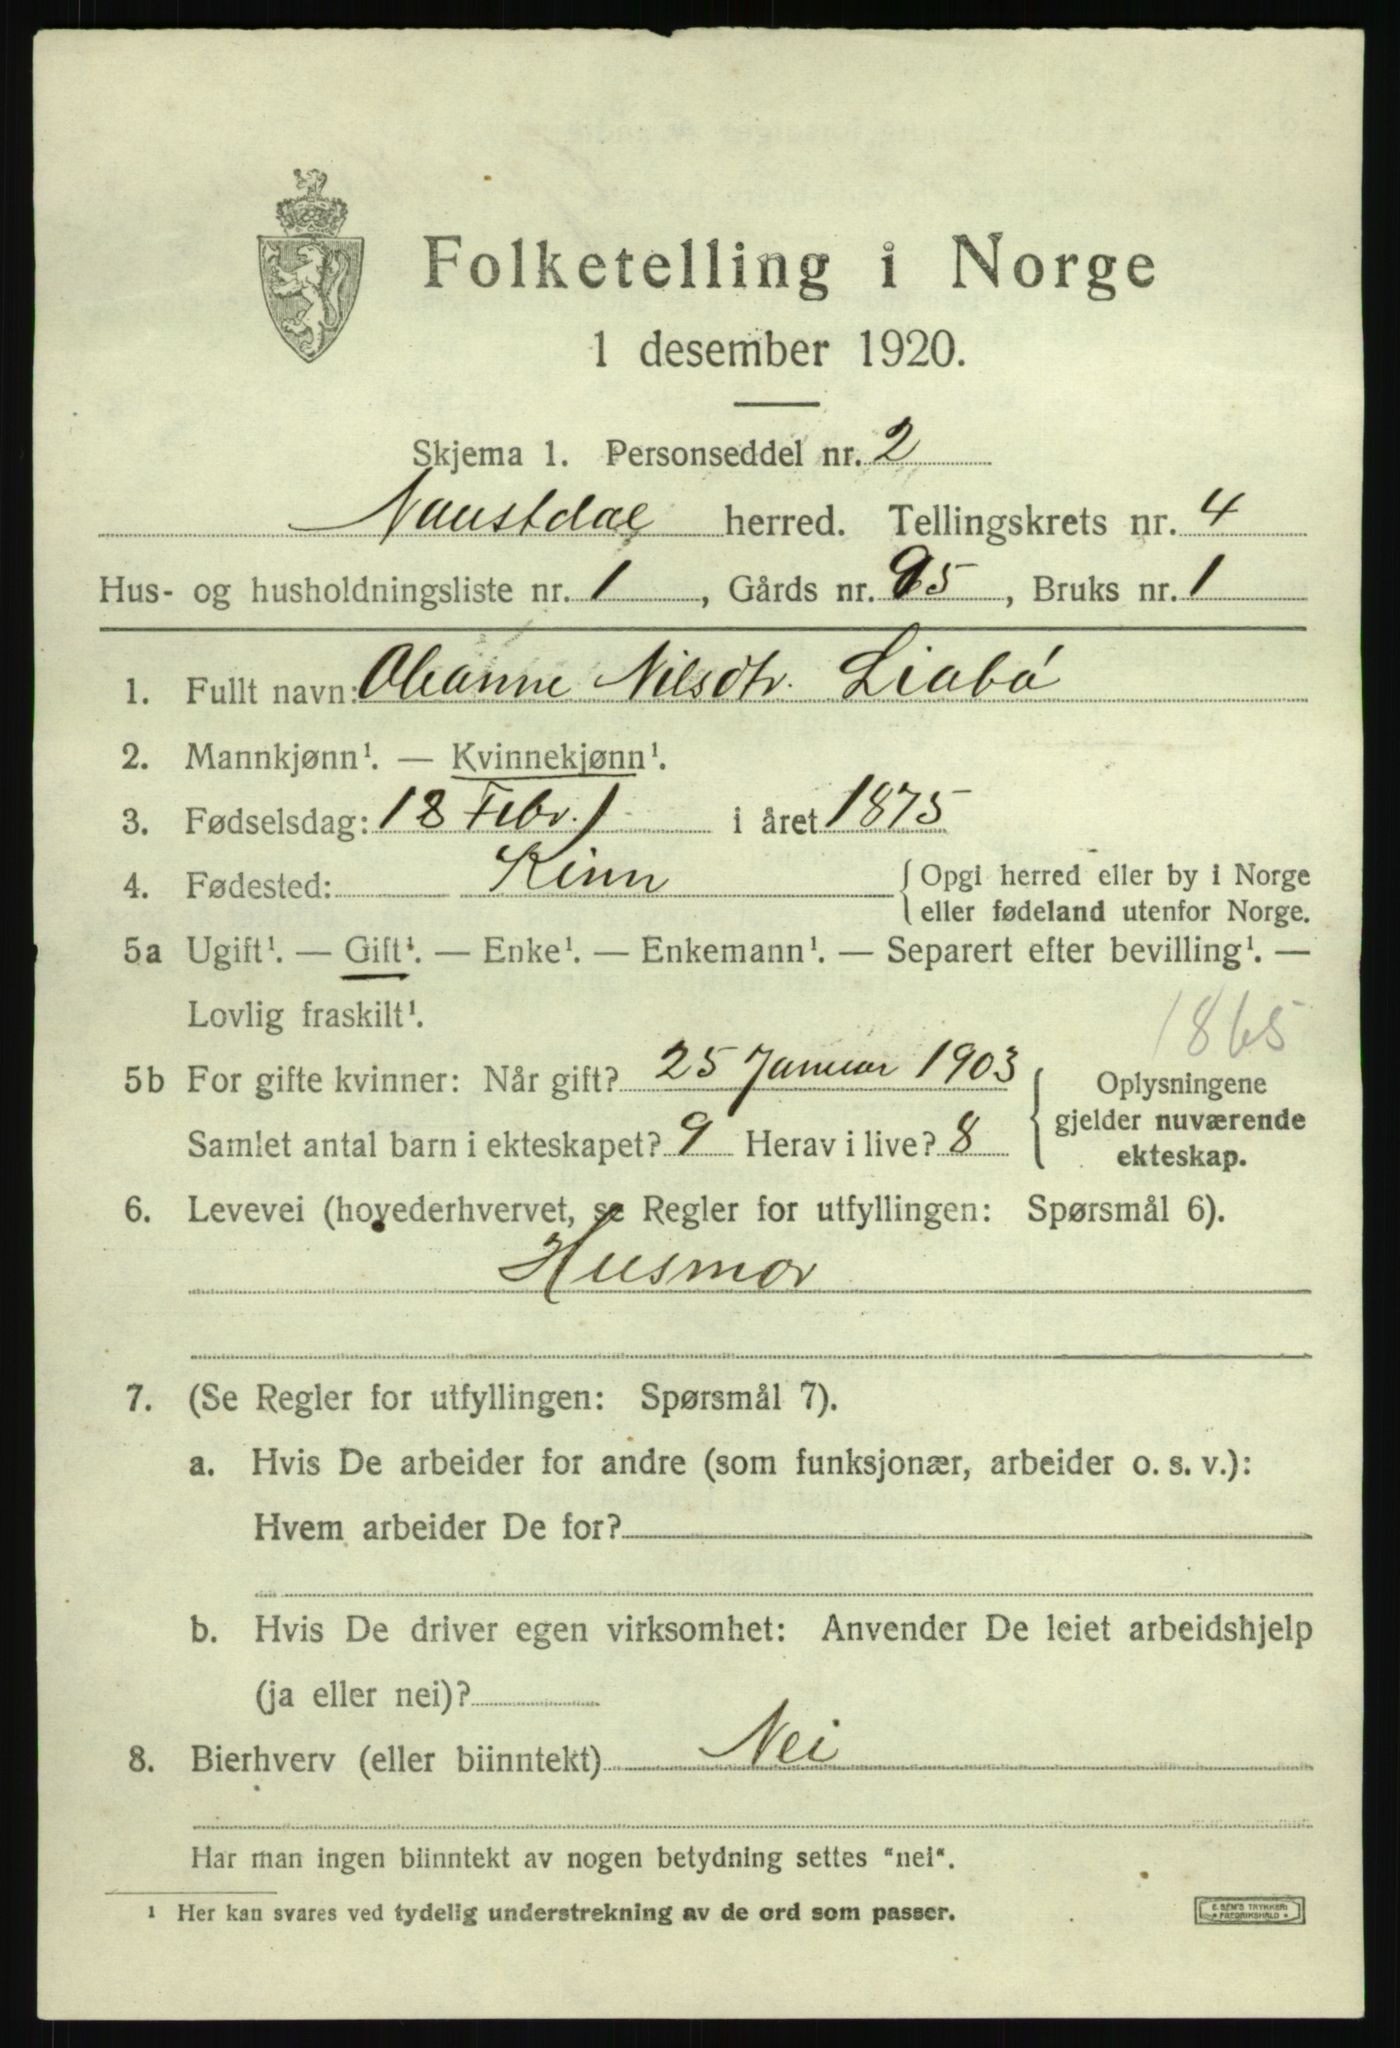 Folketelling i Norge
1 desember 1920.
Skjema 1. Personseddel nr. 2
Naustdal herred. Tellingskrets nr. 4
Hus- og husholdningsliste nr. 1, Gårds nr. 95, Bruks nr. 1
1. Fullt navn: Oleanne Nilsdtr. Liabö
2. Mannkjønn¹. — Kvinnekjønn¹.
3. Fødselsdag: 18 Febr. i året 1875
4. Fødested: Kinn { Opgi herred eller by i Norge
eller fødeland utenfor Norge.
5a Ugift¹. — Gift¹. — Enke¹. — Enkemann¹. — Separert efter bevilling¹. —
Lovlig fraskilt¹.
1865
5b For gifte kvinner: Når gift? 25 Januar 1903 { Oplysningene
gjelder nuværende
Samlet antal barn i ekteskapet? 9 Herav i live? 8
ekteskap.
6. Levevei (hovederhvervet, se Regler for utfyllingen: Spørsmål 6).
Husmor
7. (Se Regler for utfyllingen: Spørsmål 7).
a. Hvis De arbeider for andre (som funksjonær, arbeider o. s. v.):
Hvem arbeider De for?
b. Hvis De driver egen virksomhet: Anvender De leiet arbeidshjelp
(ja eller nei)?
8. Bierhverv (eller biinntekt) Nei
Har man ingen biinntekt av nogen betydning settes "nei".
¹ Her kan svares ved tydelig understrekning av de ord som passer.
E. SEM'S TRYKKERI
FREDRIKSHALD